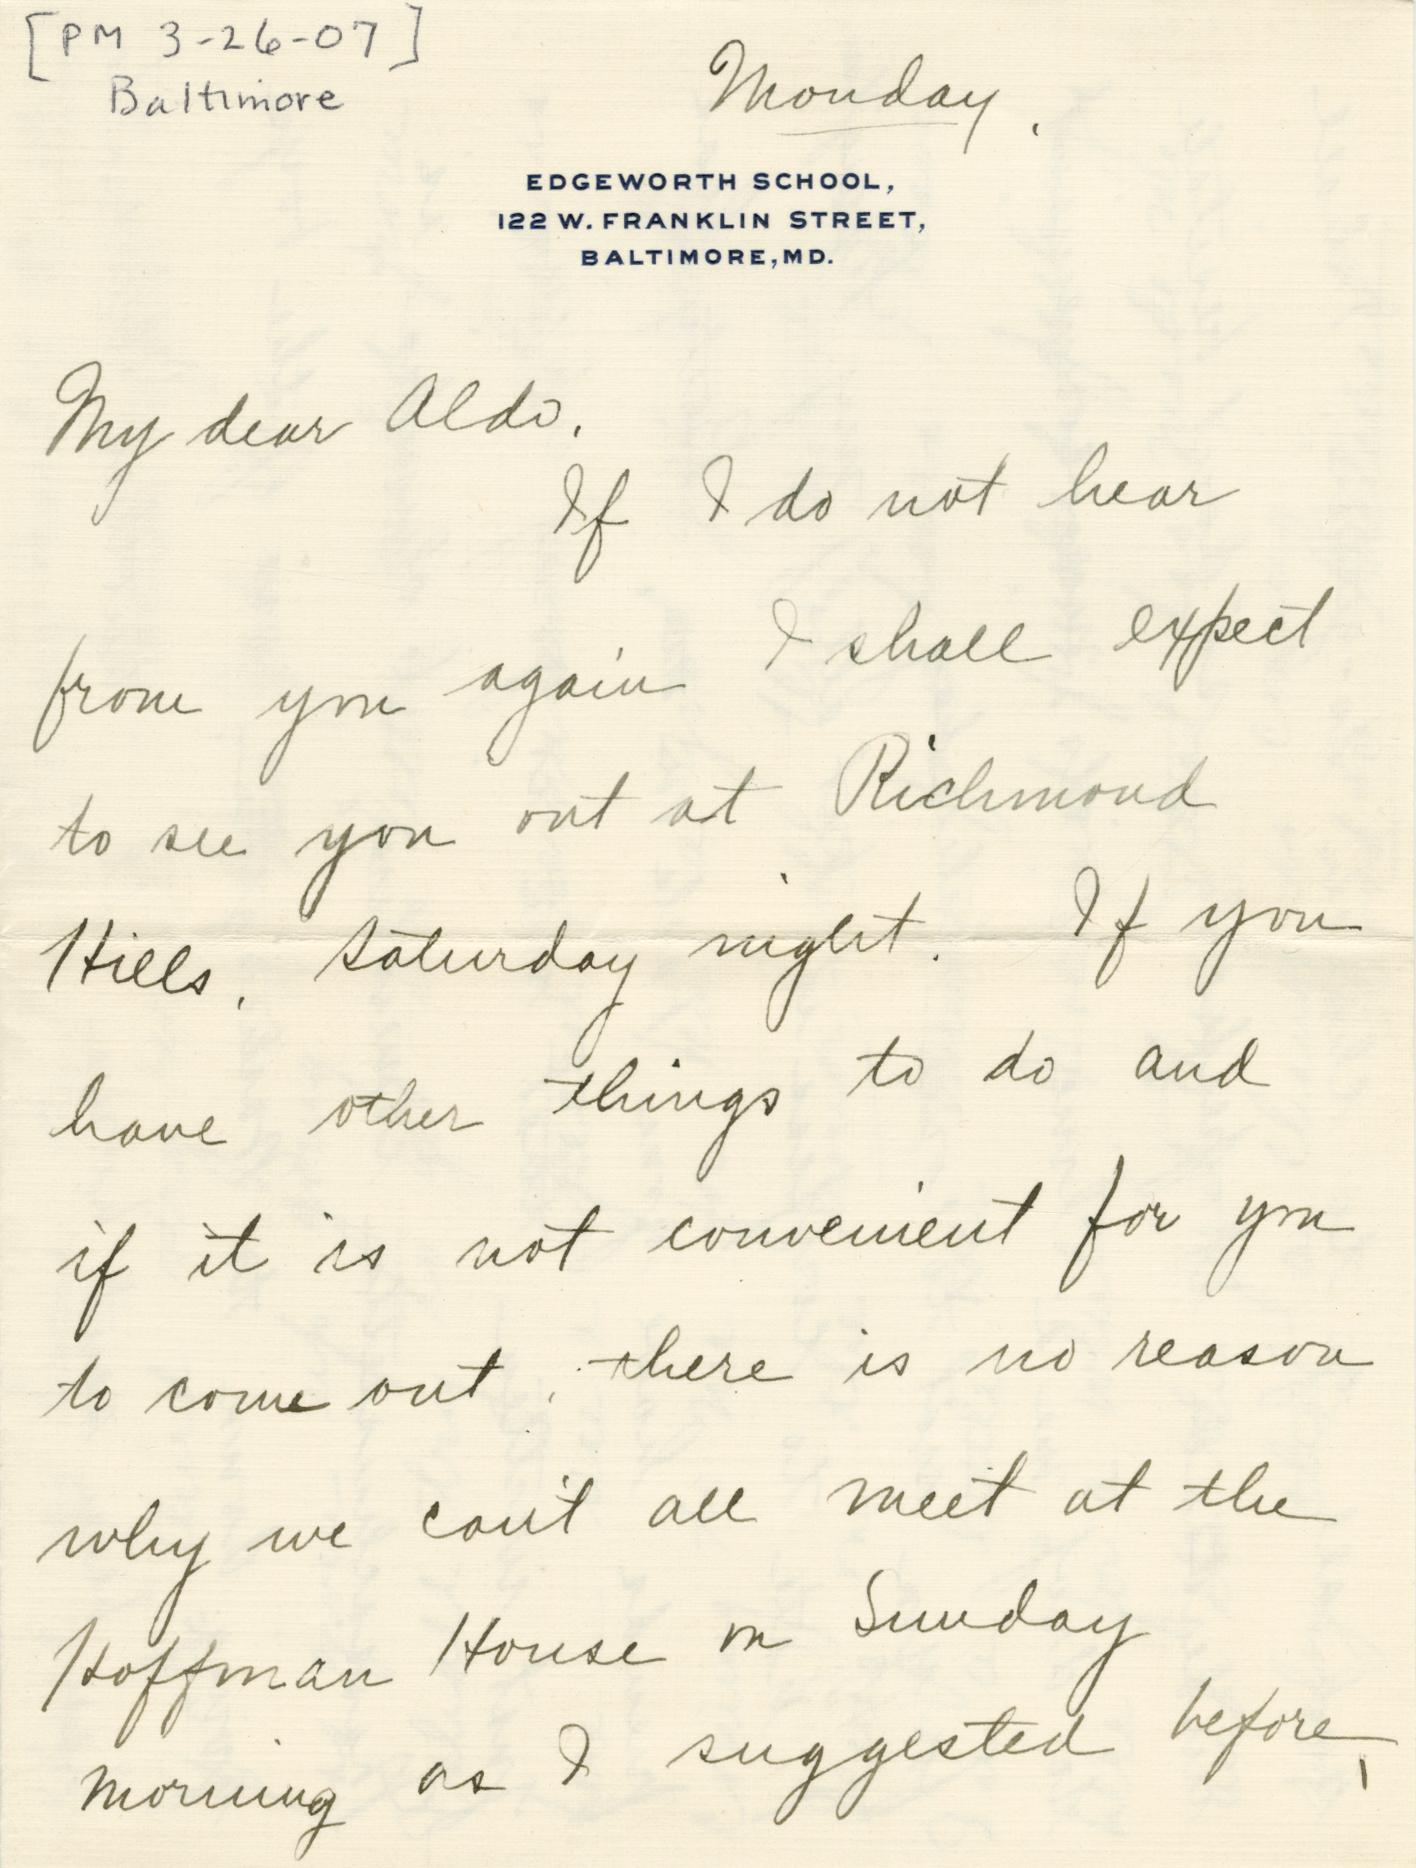 [PM 3-26-07]
Baltimore
Monday.
EDGEWORTH SCHOOL,
122 W. FRANKLIN STREET,
BALTIMORE, MD.
My dear Aldo,
If I do not hear
from you again I shall expect
to see you out at Richmond
Hills, Saturday night. If you
have other things to do and
if it is not convenient for you
to come out, there is no reason
why we can't all meet at the
Hoffman House on Sunday
morning as I suggested before,